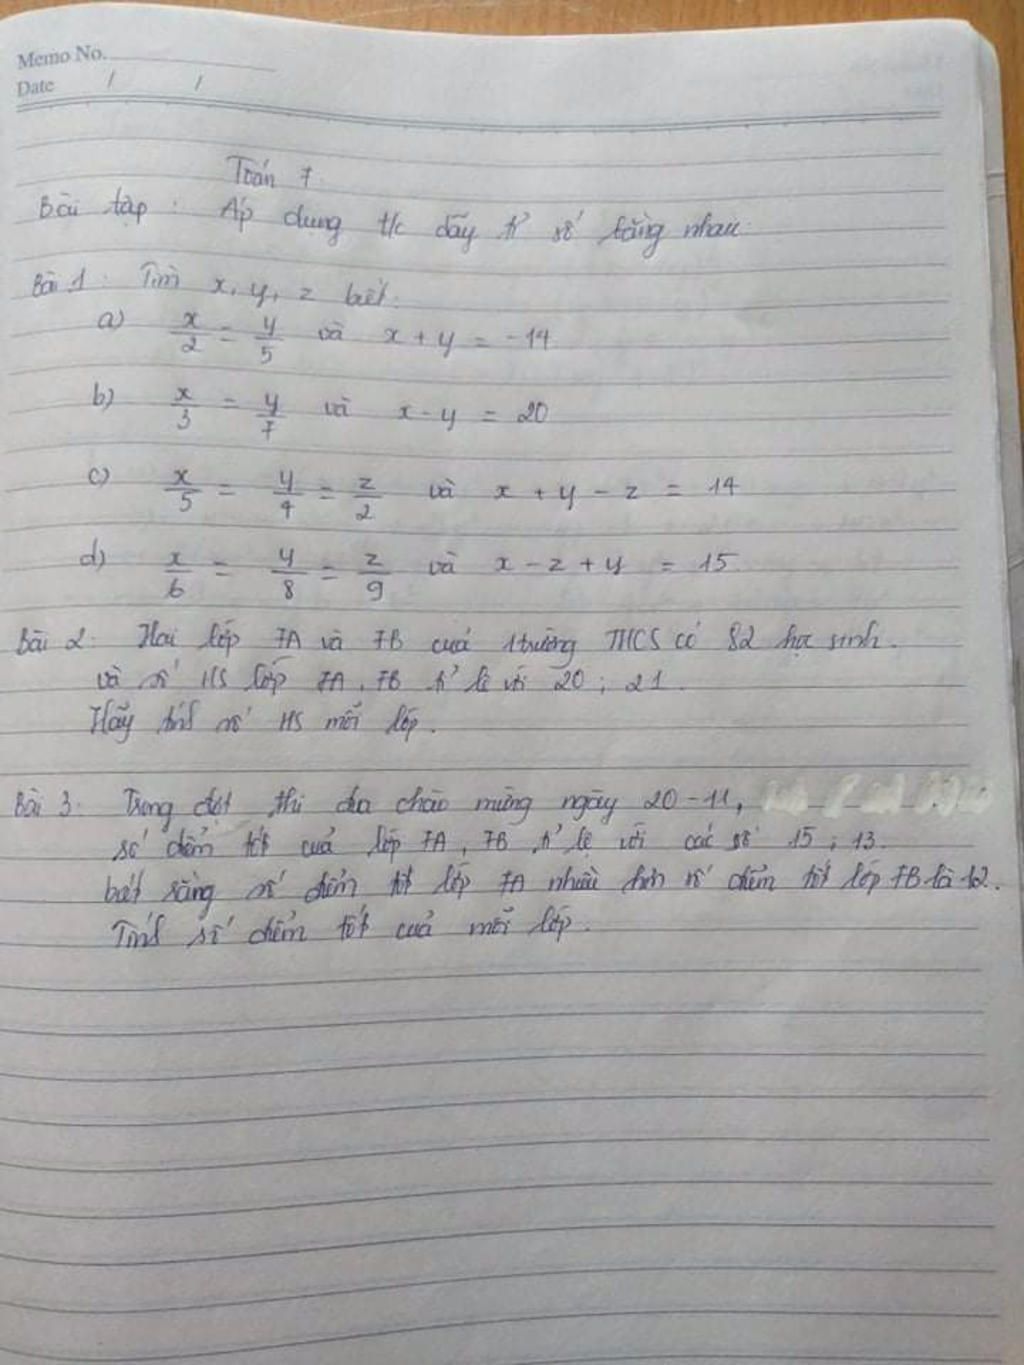 Memo No.
Date / /
Toán 7
Bài tập : Áp dụng t/c dãy tỉ số bằng nhau
Bài 1 : Tìm x, y, z biết.
a) x/2 = y/5 và x + y = -14
b) x/3 = y/7 và x - y = 20
c) x/5 = y/4 = z/2 và x + y - z = 14
d) x/6 = y/8 = z/9 và x - z + y = 15
Bài 2 : Hai lớp 7A và 7B của 1 trường THCS có 82 học sinh.
và số HS lớp 7A, 7B tỉ lệ với 20 ; 21.
Hãy tính số HS mỗi lớp.
Bài 3 : Trong đợt thi đua chào mừng ngày 20-11,
số điểm tốt của lớp 7A, 7B tỉ lệ với các số 15 ; 13.
biết rằng số điểm tốt lớp 7A nhiều hơn số điểm tốt lớp 7B là 12.
Tính số điểm tốt của mỗi lớp.